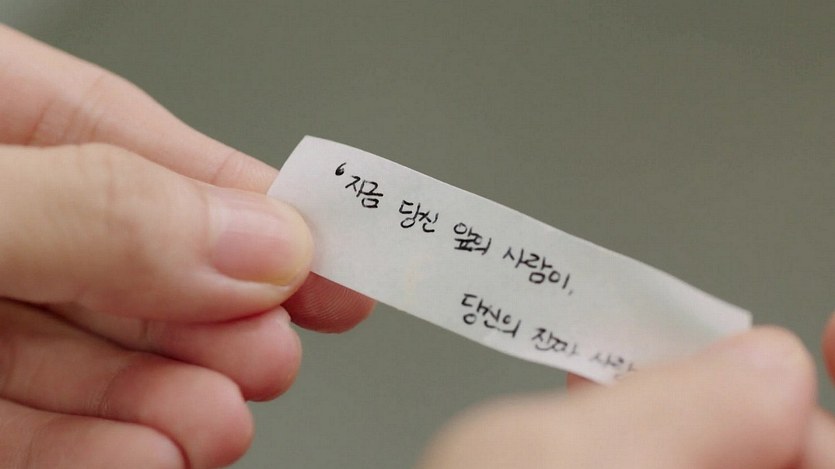 ‘지금 당신 앞의 사람이,
당신의 진짜